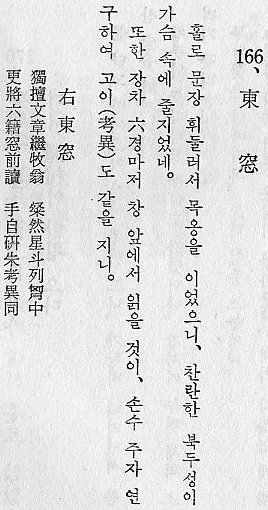 166、東 窓
홀로 문장 휘둘러서 목옹을 이었으니、찬란한 북두성이
가슴 속에 줄지었네。
또한 장차 六경마저 창 앞에서 읽을 것이、손수 주자 연
구하여 고이(考異)도 같을 지니。
右東窓
獨擅文章繼牧翁 粲然星斗列胷中
更將六籍窓前讀 手自硏朱考異同